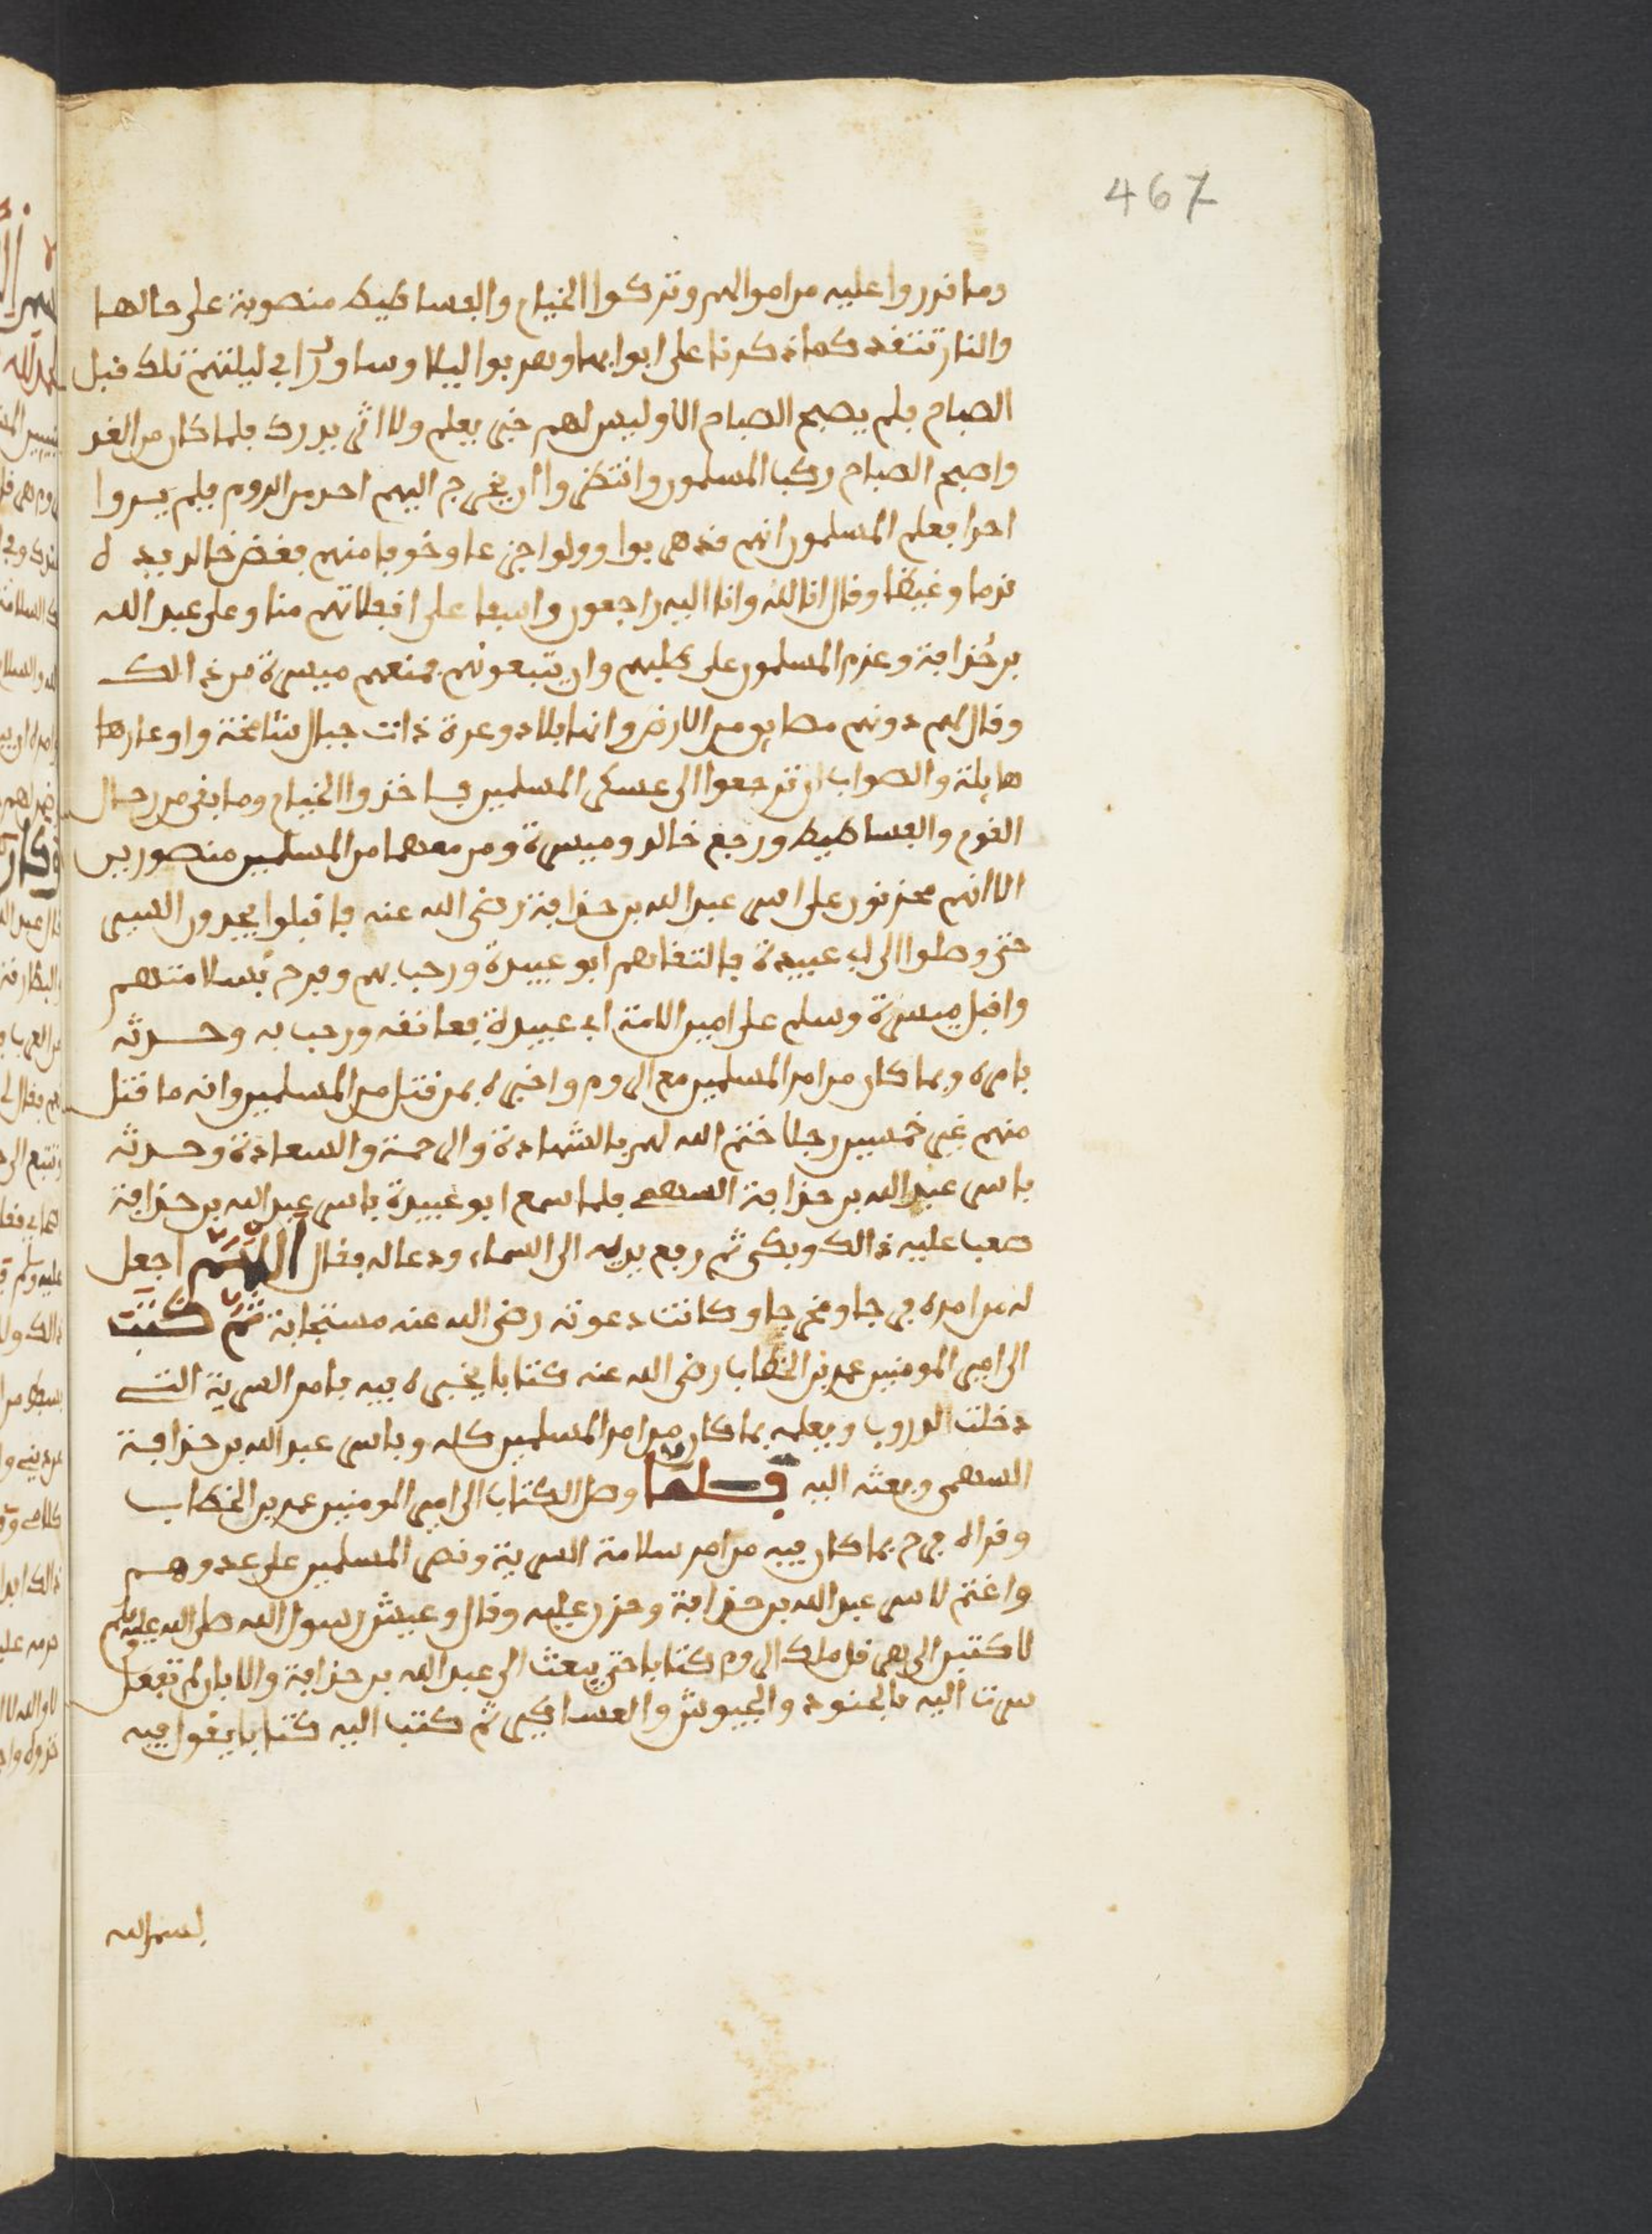 467
وما قدروا عليه من اموالهم وتركوا الخيام والفساطيط منصوبة على حالها
والنار تتقد كما ذكرنا على ابوابها وهربوا ليلا وساروا في ليلتهم تلك قبل
الصباح فلم يصبح الصباح الا وليس لهم خبر يعلم ولا اثر يدرك فلما كان من الغد
واصبح الصباح ركب المسلمون وانتظروا ان يخرج اليهم احد من الروم فلم يروا
احدا فعلم المسلمون انهم قد هربوا وولوا جزعا وخوفا منهم فعض خالد يده
ندما وغيظا وقال انا لله وانا اليه راجعون واسفا على انفلاتهم منا وعلى عبد الله
بن حُذافة وعزم المسلمون على طلبهم وان يتبعونهم فمنعهم ميسرة من ذالك
وقال لهم دونهم مضايق من الارض وانها بلاد وعرة ذات جبال شامخة واوعارها
هايلة والصواب ان ترجعوا الى عسكر المسلمين فاخذوا الخيام وما بقى من رحال
القوم والفساطيط ورجع خالد وميسرة ومن معهما من المسلمين منصورين
الا انهم محزنون على اسر عبد الله بن حذافة رضى الله عنه فاقبلوا يجدون السير
حتى وصلوا الى ابي عبيدة فالتقاهم ابو عبيدة ورحب بهم وفرح بسلامتهم
واقبل ميسرة وسلم على امير الامة ابي عبيدة فعانقه ورحب به وحدثه
بامره وبما كان من امر المسلمين مع الروم واخبره بمن قتل من المسلمين وانه ما قتل
منهم غير خمسين رجلا ختم الله لهم بالشهادة والرحمة والسعادة وحدثه
باسر عبد الله بن حذافة السهمي فلما سمع ابو عبيدة باسر عبد الله بن حذافة
صعب عليه ذالك وبكى ثم رفع يديه الى السماء ودعا له فقال اللهم اجعل
له من امره فرجا ومخرجا وكانت دعوته رضى الله عنه مستجابة ثم كتب
الى امير المومنين عمر بن الخطاب رضى الله عنه كتابا يخبره فيه بامر السرية التي
دخلت الدروب ويعلمه بما كان من امر المسلمين كله وباسر عبد الله بن حذافة
السهمى وبعثه اليه فلما وصل الكتاب الى امير المومنين عمر بن الخطاب
وقراه فرح بما كان فيه من امر سلامة السرية ونصر المسلمين على عدوهم
واغتم لاسر عبد الله بن حذافة وحزن عليه وقال وعيش رسول الله صلى الله عليه وسلم
لاكتبن الى هرقل ملك الروم كتابا حتى يبعث الى عبد الله بن حذافة والا فان لم تفعل
سرت اليه بالجنود والجيوش والعساكر ثم كتب اليه كتابا يقول فيه
بسم الله